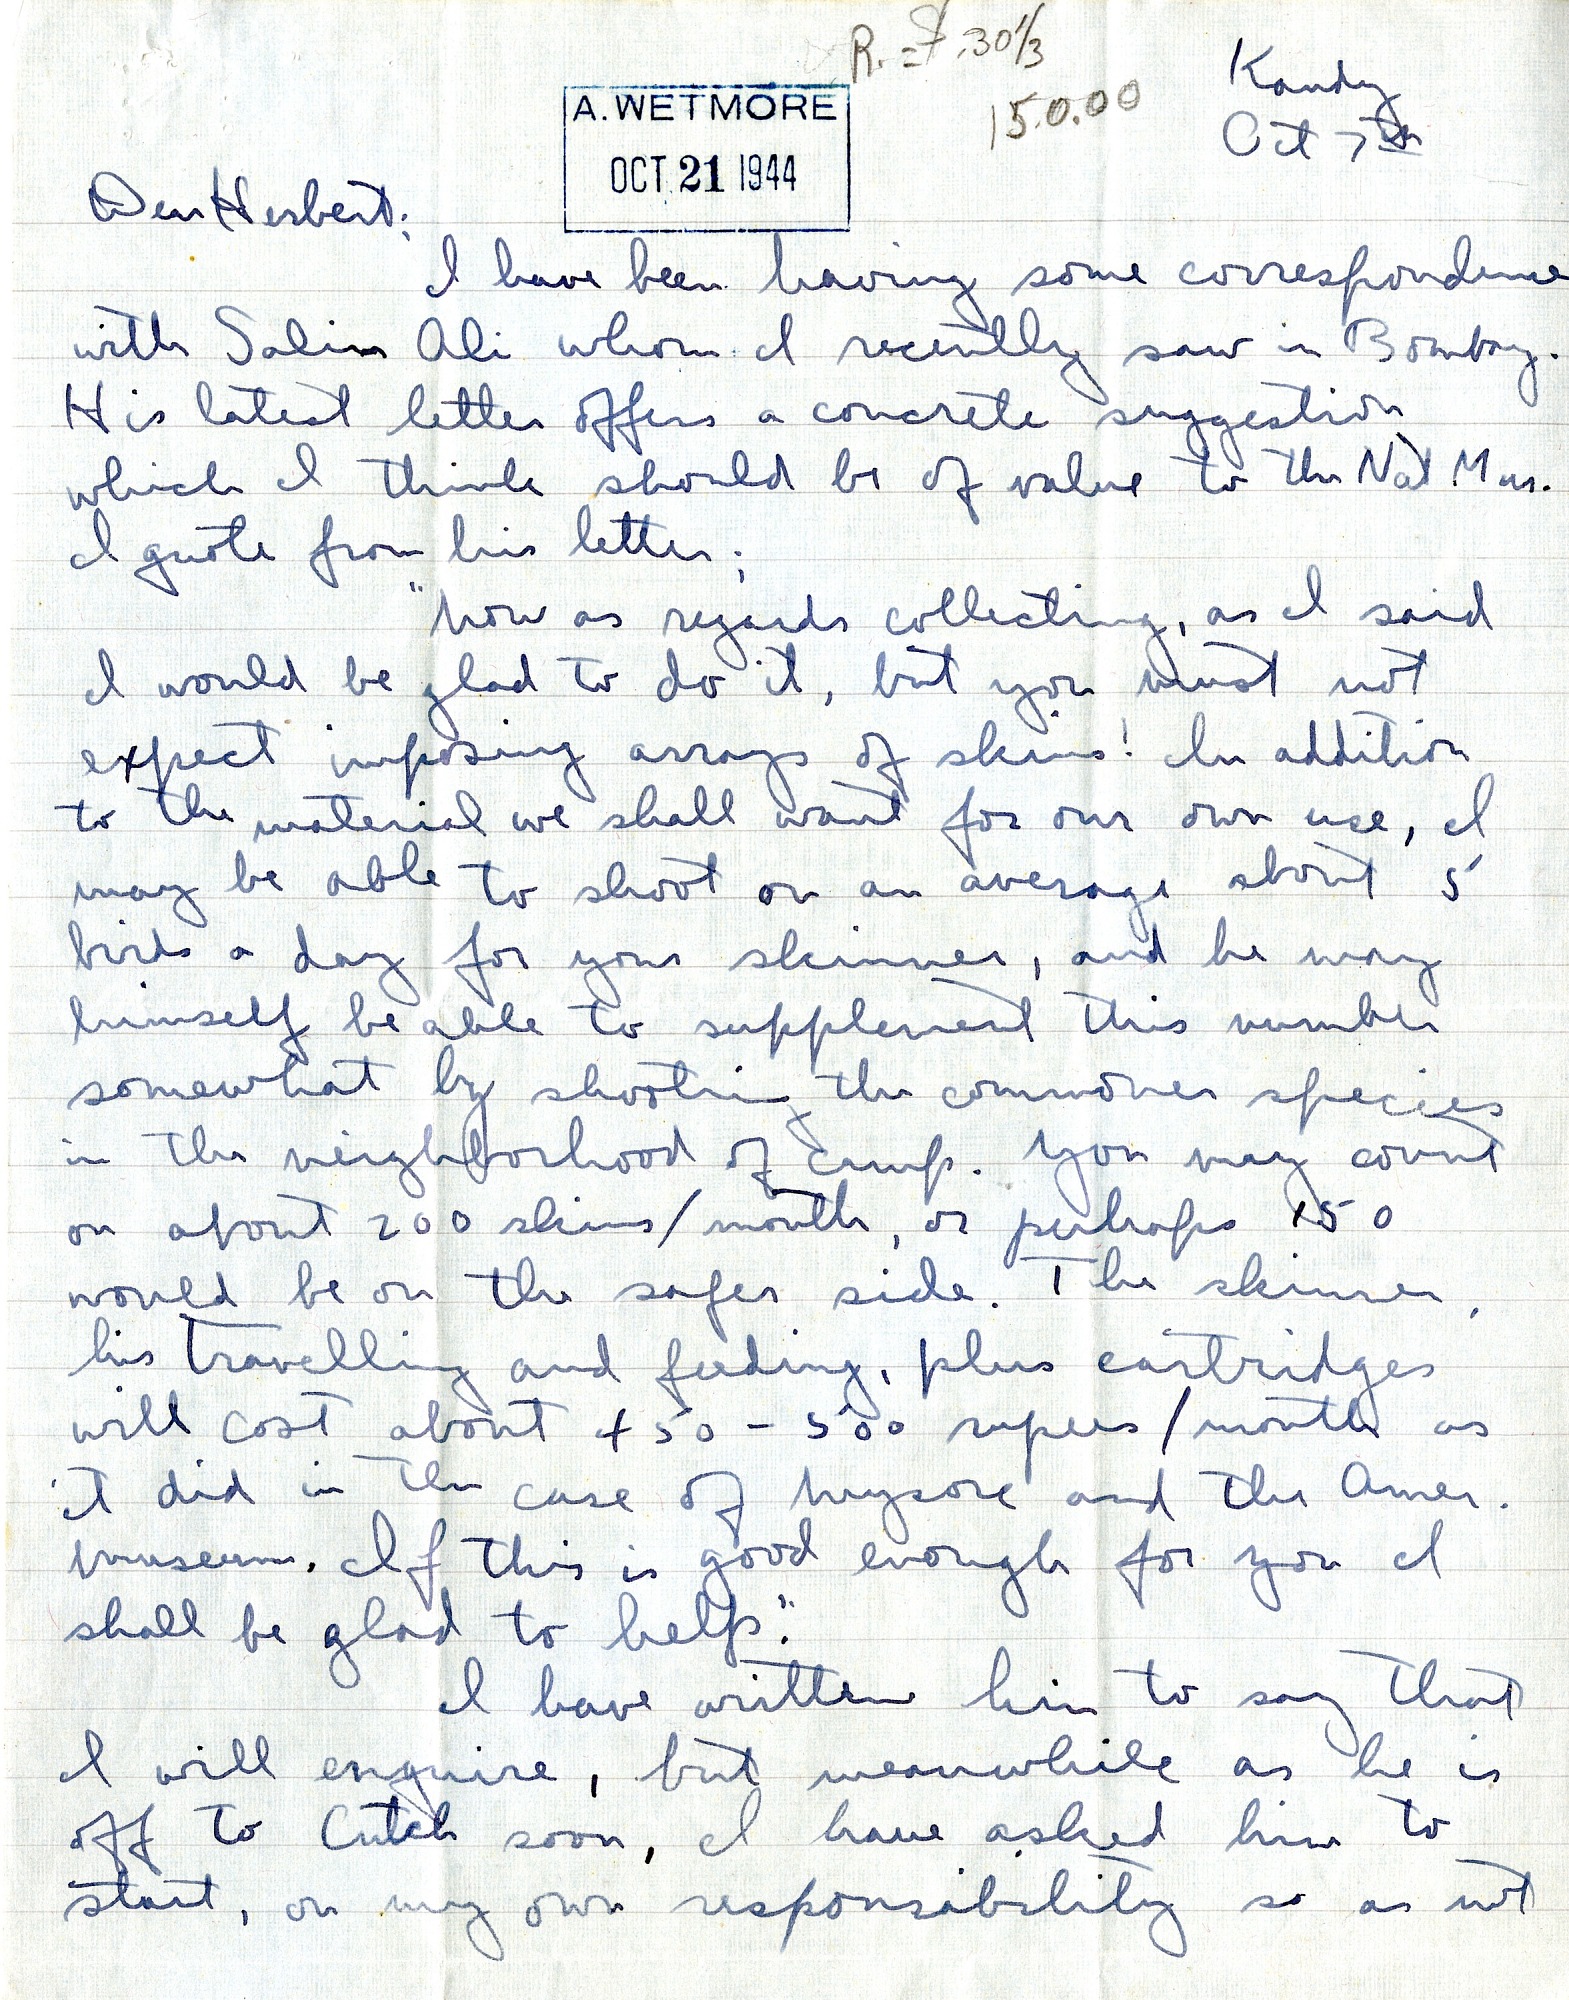 R. = $.30 1/3
150.00
Kandy
Oct 7th
A. WETMORE
OCT 21 1944
Dear Herbert;
I have been having some correspondence
with Salim Ali whom I recently saw in Bombay.
His latest letter offers a concrete suggestion
which I think should be of value to the Nat Mus.
I quote from his letter;
"Now as regards collecting, as I said
I would be glad to do it, but you must not
expect imposing arrays of skins! In addition
to the material we shall want for our own use, I
may be able to shoot on an average about 5
birds a day for your skinner, and he may
himself be able to supplement this number
somewhat by shooting the commoner species
in the neighborhood of camp. You may count
on about 200 skins/month, or perhaps 150
would be on the safer side. The skinner,
his travelling and feeding, plus cartridges
will cost about 450-500 rupees/month as
it did in the case of Mysore and the Amer.
Museum. If this is good enough for you I
shall be glad to help."
I have written him to say that
I will enquire, but meanwhile as he is
off to Cutch soon, I have asked him to
start, on my own responsibility so as not